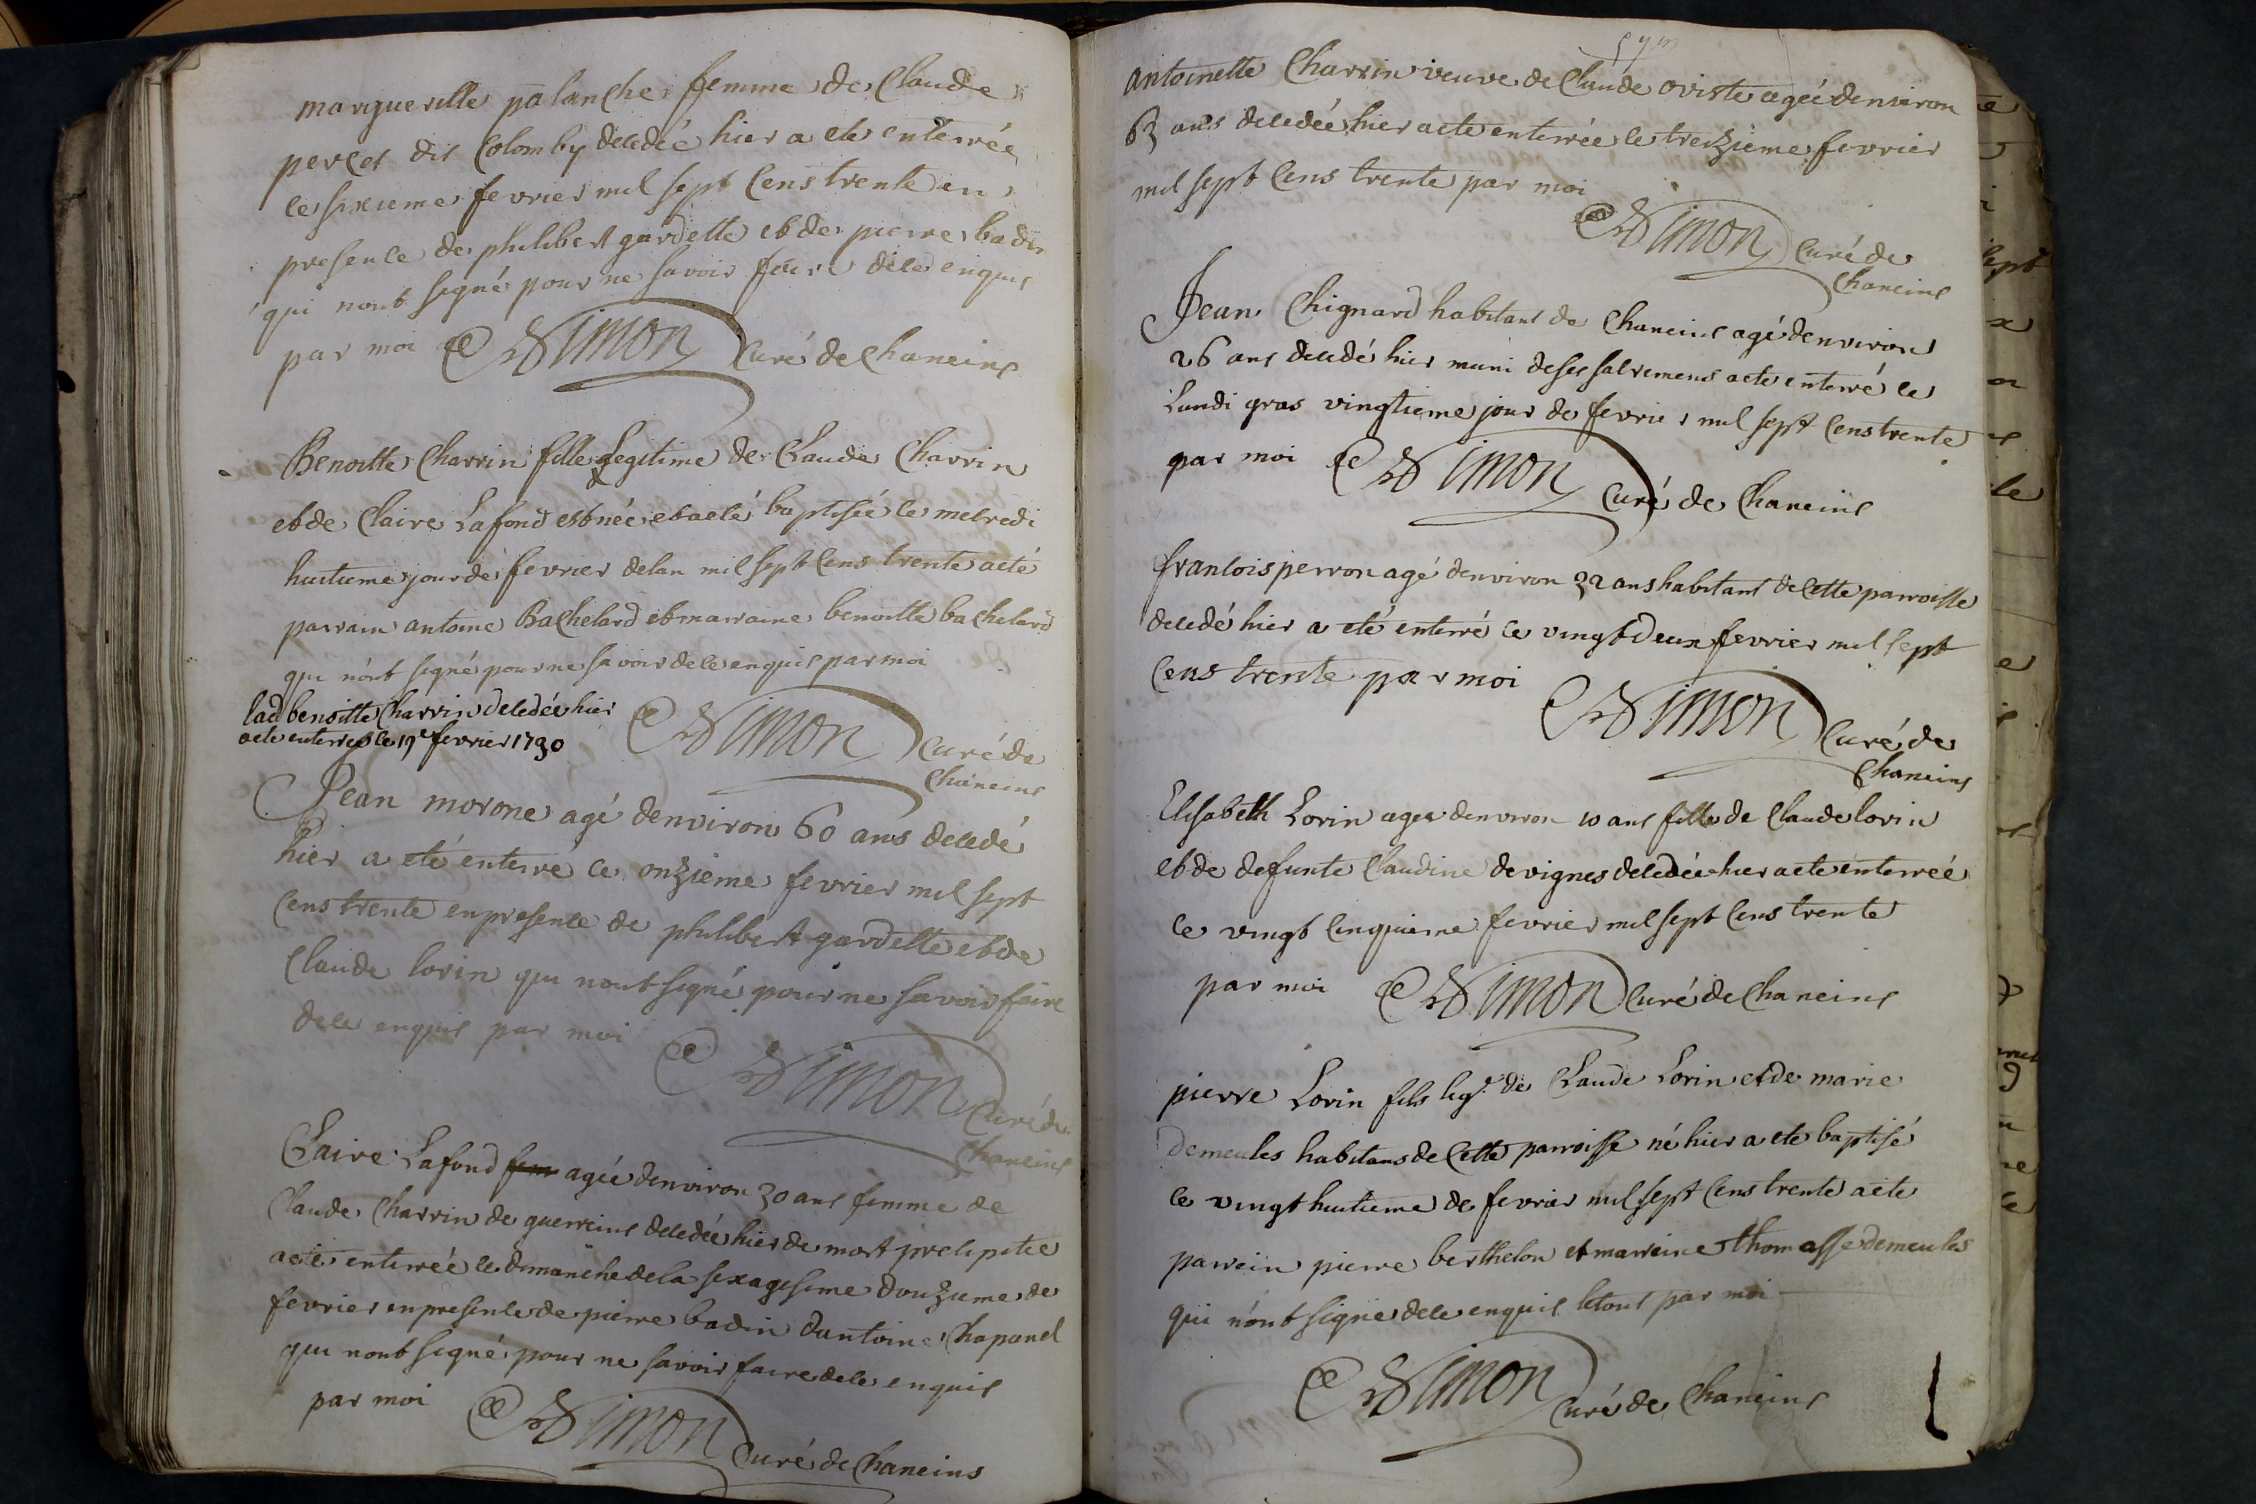 marguerille palanche femme de Claude
percet dit Colomby decedée hier a ete enterrée
le sixieme fevrier mil sept cens trente en
presence de philibert gardette et de pierre badin
qui nont signé pour ne savoir faire de ce enquis
par moi Simon Curé de Chaneins
Benoitte Charrin fille Legitime de Claude Charrin
et de Claire Lafond est née et a eté baptisée le mecredi
huitieme jour de fevrier de lan mil sept cens trente a eté
parrain antoine Bachelard et marraine benoitte bachelard
qui n'ont signé pour ne savoir de ce enquis par moi
lad benoitte Charrin decedée hier
a ete enterrée le 19e fevrier 1730
Simon Curé de
Chaneins
Jean morone agé denviron 60 ans decedé
hier a eté enterré ce onzieme fevrier mil sept
cens trente en presence de philibert gardette et de
Claude lorin qui nont signé pour ne savoir faire
de ce enquis par moi
Simon Curé de
Chaneins
Claire Lafond agée denviron 30 ans femme de
Claude Charrin de guerreins decedée hier de mort precipitée
a eté enterrée le dimanche de la sexagesime douzieme de
fevrier en presence de pierre badin dantoine Chapanel
qui nont signé pour ne savoir faire de ce enquis
par moi Simon Curé de Chaneins
antoinette Charrin veuve de Claude oviste agée denviron
63 ans decedée hier a ete enterrée le treizieme fevrier
mil sept cens trente par moi
Simon Curé de
Chaneins
Jean Chignard habitant de Chaneins agé denviron
26 ans decedé hier muni de ses sacremens a ete enterré le
Lundi gras vingtieme jour de fevrier mil sept cens trente
par moi Simon Curé de Chaneins
francois perron agé denviron 32 ans habitant de cette parroisse
decedé hier a eté enterré le vingt deux fevrier mil sept
cens trente par moi
Simon Curé de
Chaneins
Elisabeth Lorin agée denviron 10 ans fille de Claude lorin
et de defunte Claudine devignes decedée hier a ete enterrée
le vingt cinquieme fevrier mil sept cens trente
par moi Simon Curé de Chaneins
pierre Lorin fils leg.e de Claude Lorin et de marie
demeules habitans de cette parroisse né hier a ete baptisé
le vingt huitieme de fevrier mil sept cens trente a ete
parrein pierre berthelon et marreine thomasse demeules
qui n'ont signé de ce enquis par moi
Simon Curé de Chaneins